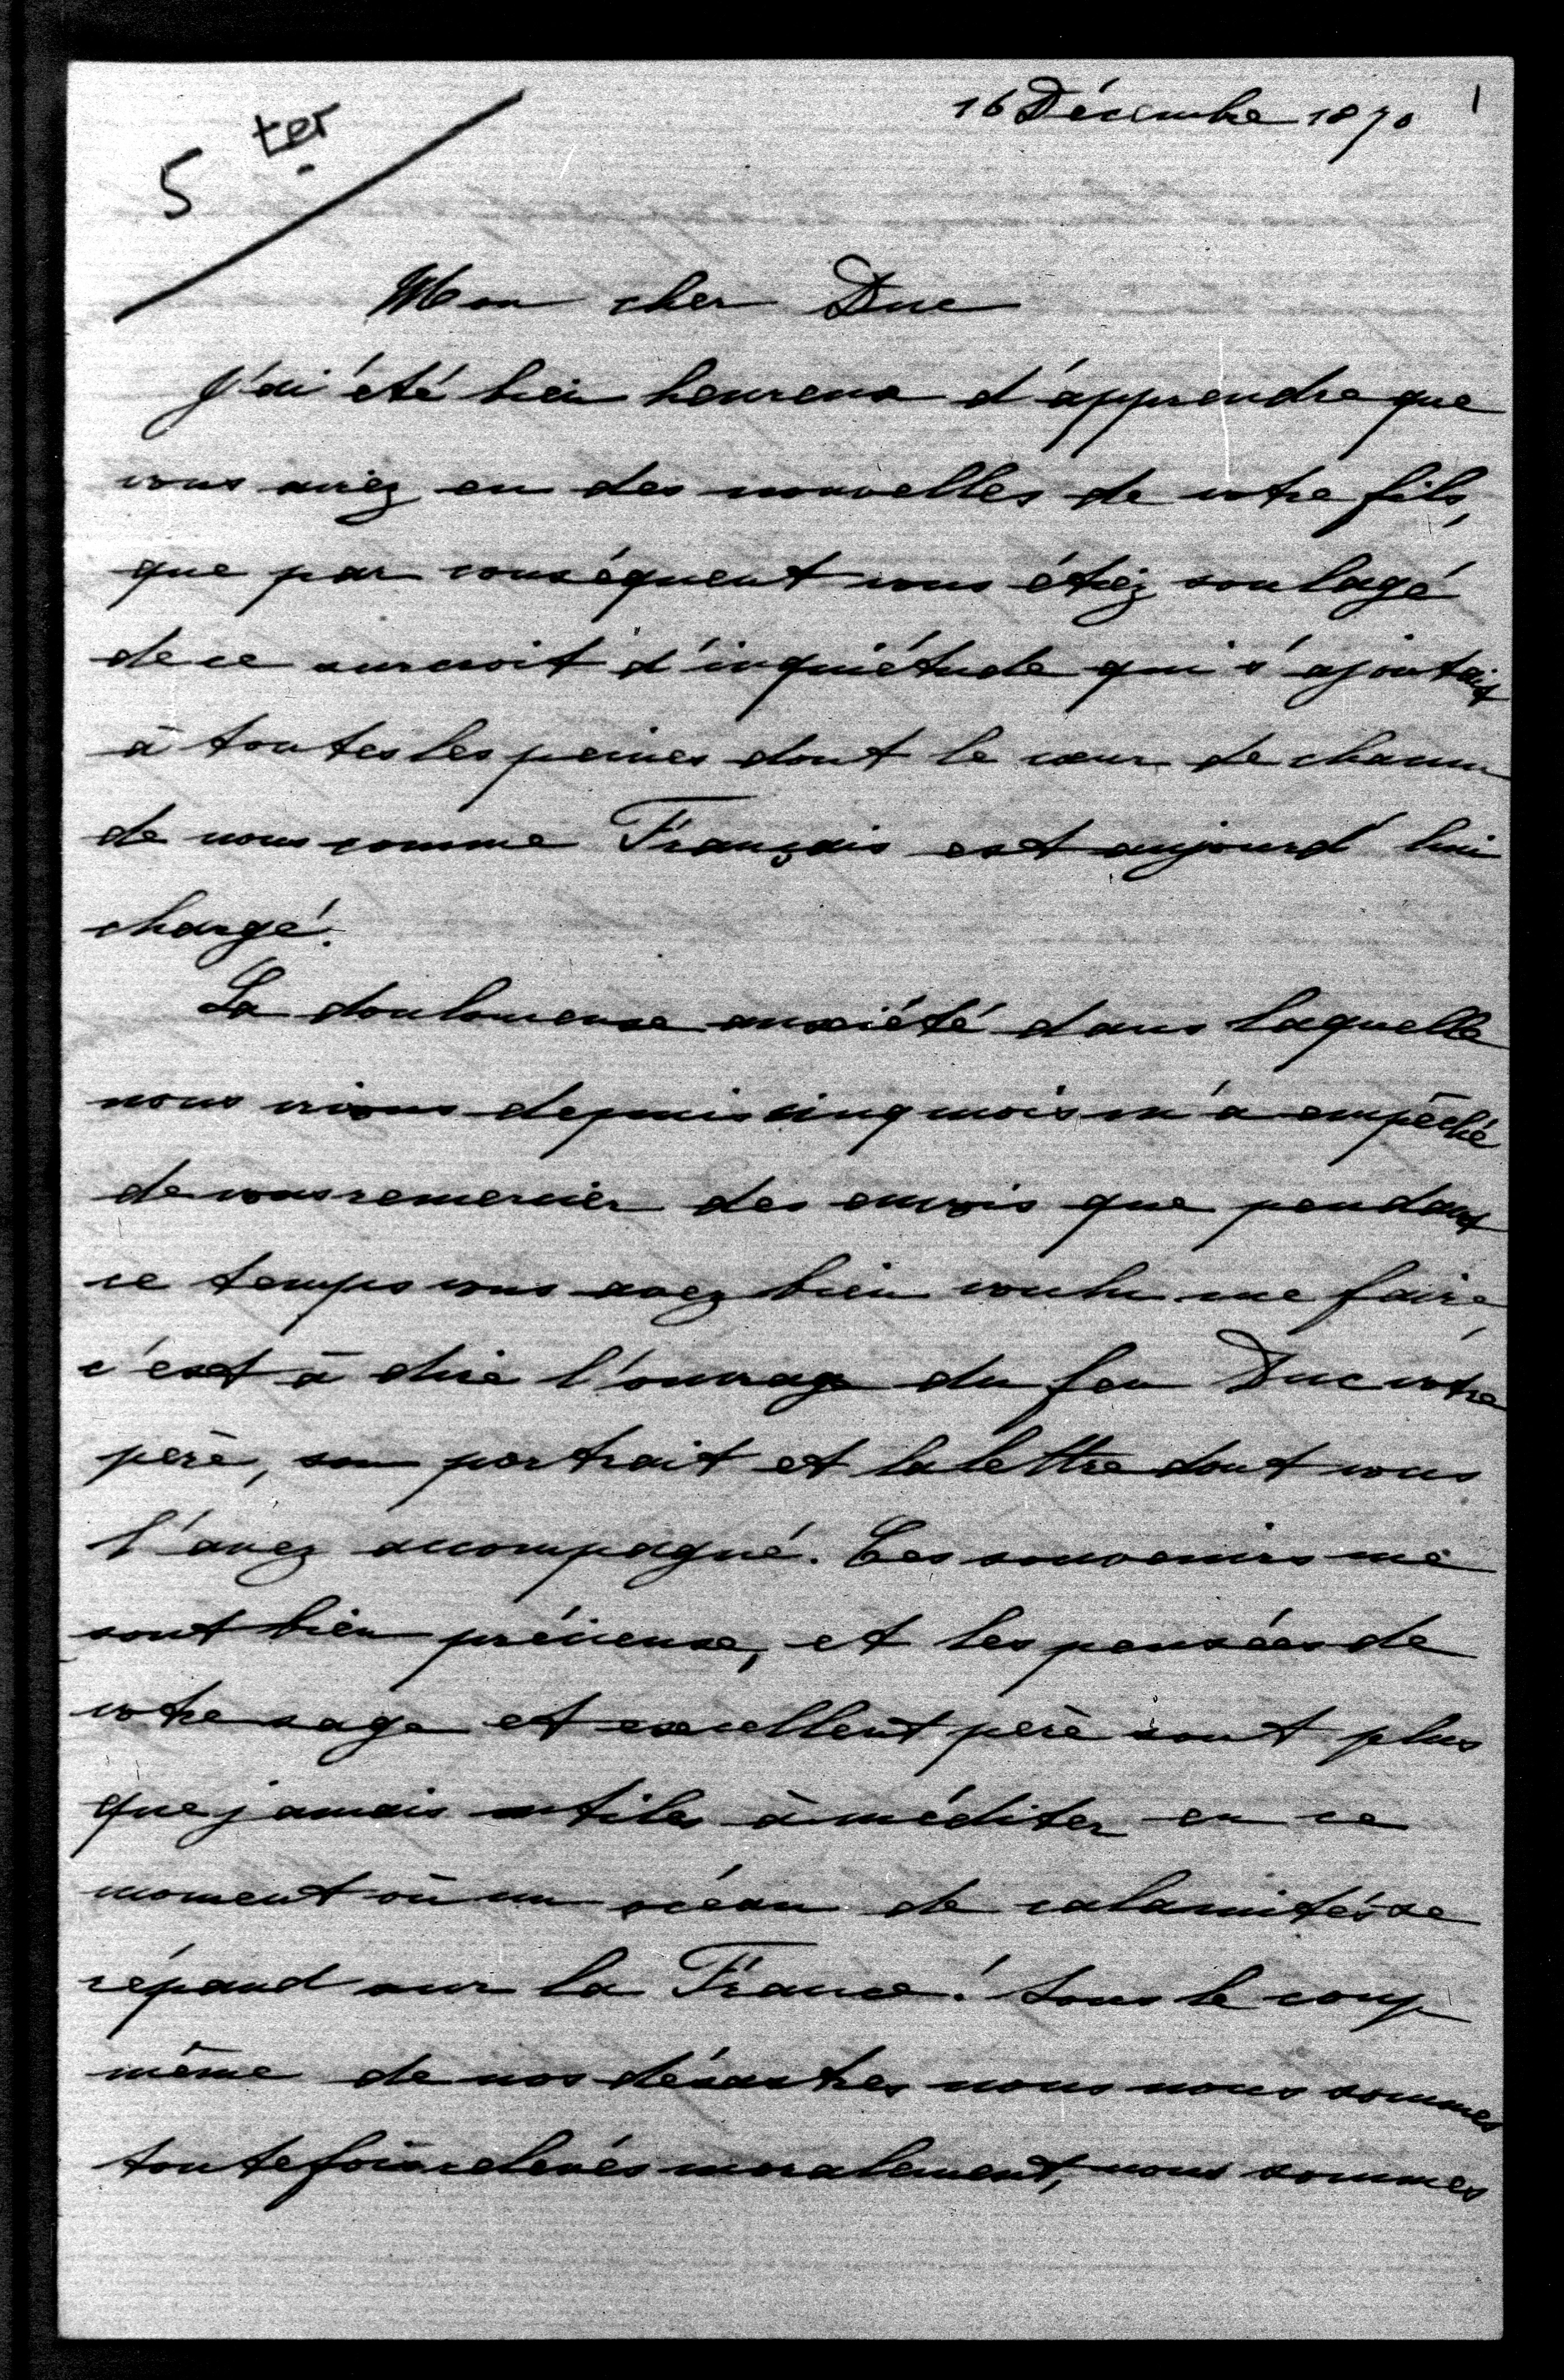 16 Décembre 1870
1
5 ter
Mon cher Duc
J'ai été bien heureux d'apprendre que
vous aviez eu des nouvelles de votre fils,
que par conséquent vous étiez soulagé
de ce surcroit d'inquiétude qui s'ajoutait
à toutes les peines dont le cœur de chacun
de nous comme Français est aujourd'hui
chargé.
La douloureuse anxiété dans laquelle
nous vivons depuis cinq mois m'a empêché
de vous remercier des envois que pendant
ce temps vous avez bien voulu me faire,
c'est à dire l'ouvrage du feu Duc votre
père, son portrait et la lettre dont vous
l'avez accompagné. Ces souvenirs me
sont bien précieux, et les pensées de
votre sage et excellent père sont plus
que jamais utiles à méditer en ce
moment où un océan de calamités se
répand sur la France! Sous le coup
même de nos désastres nous nous sommes
toutefois relevés moralement, nous sommes